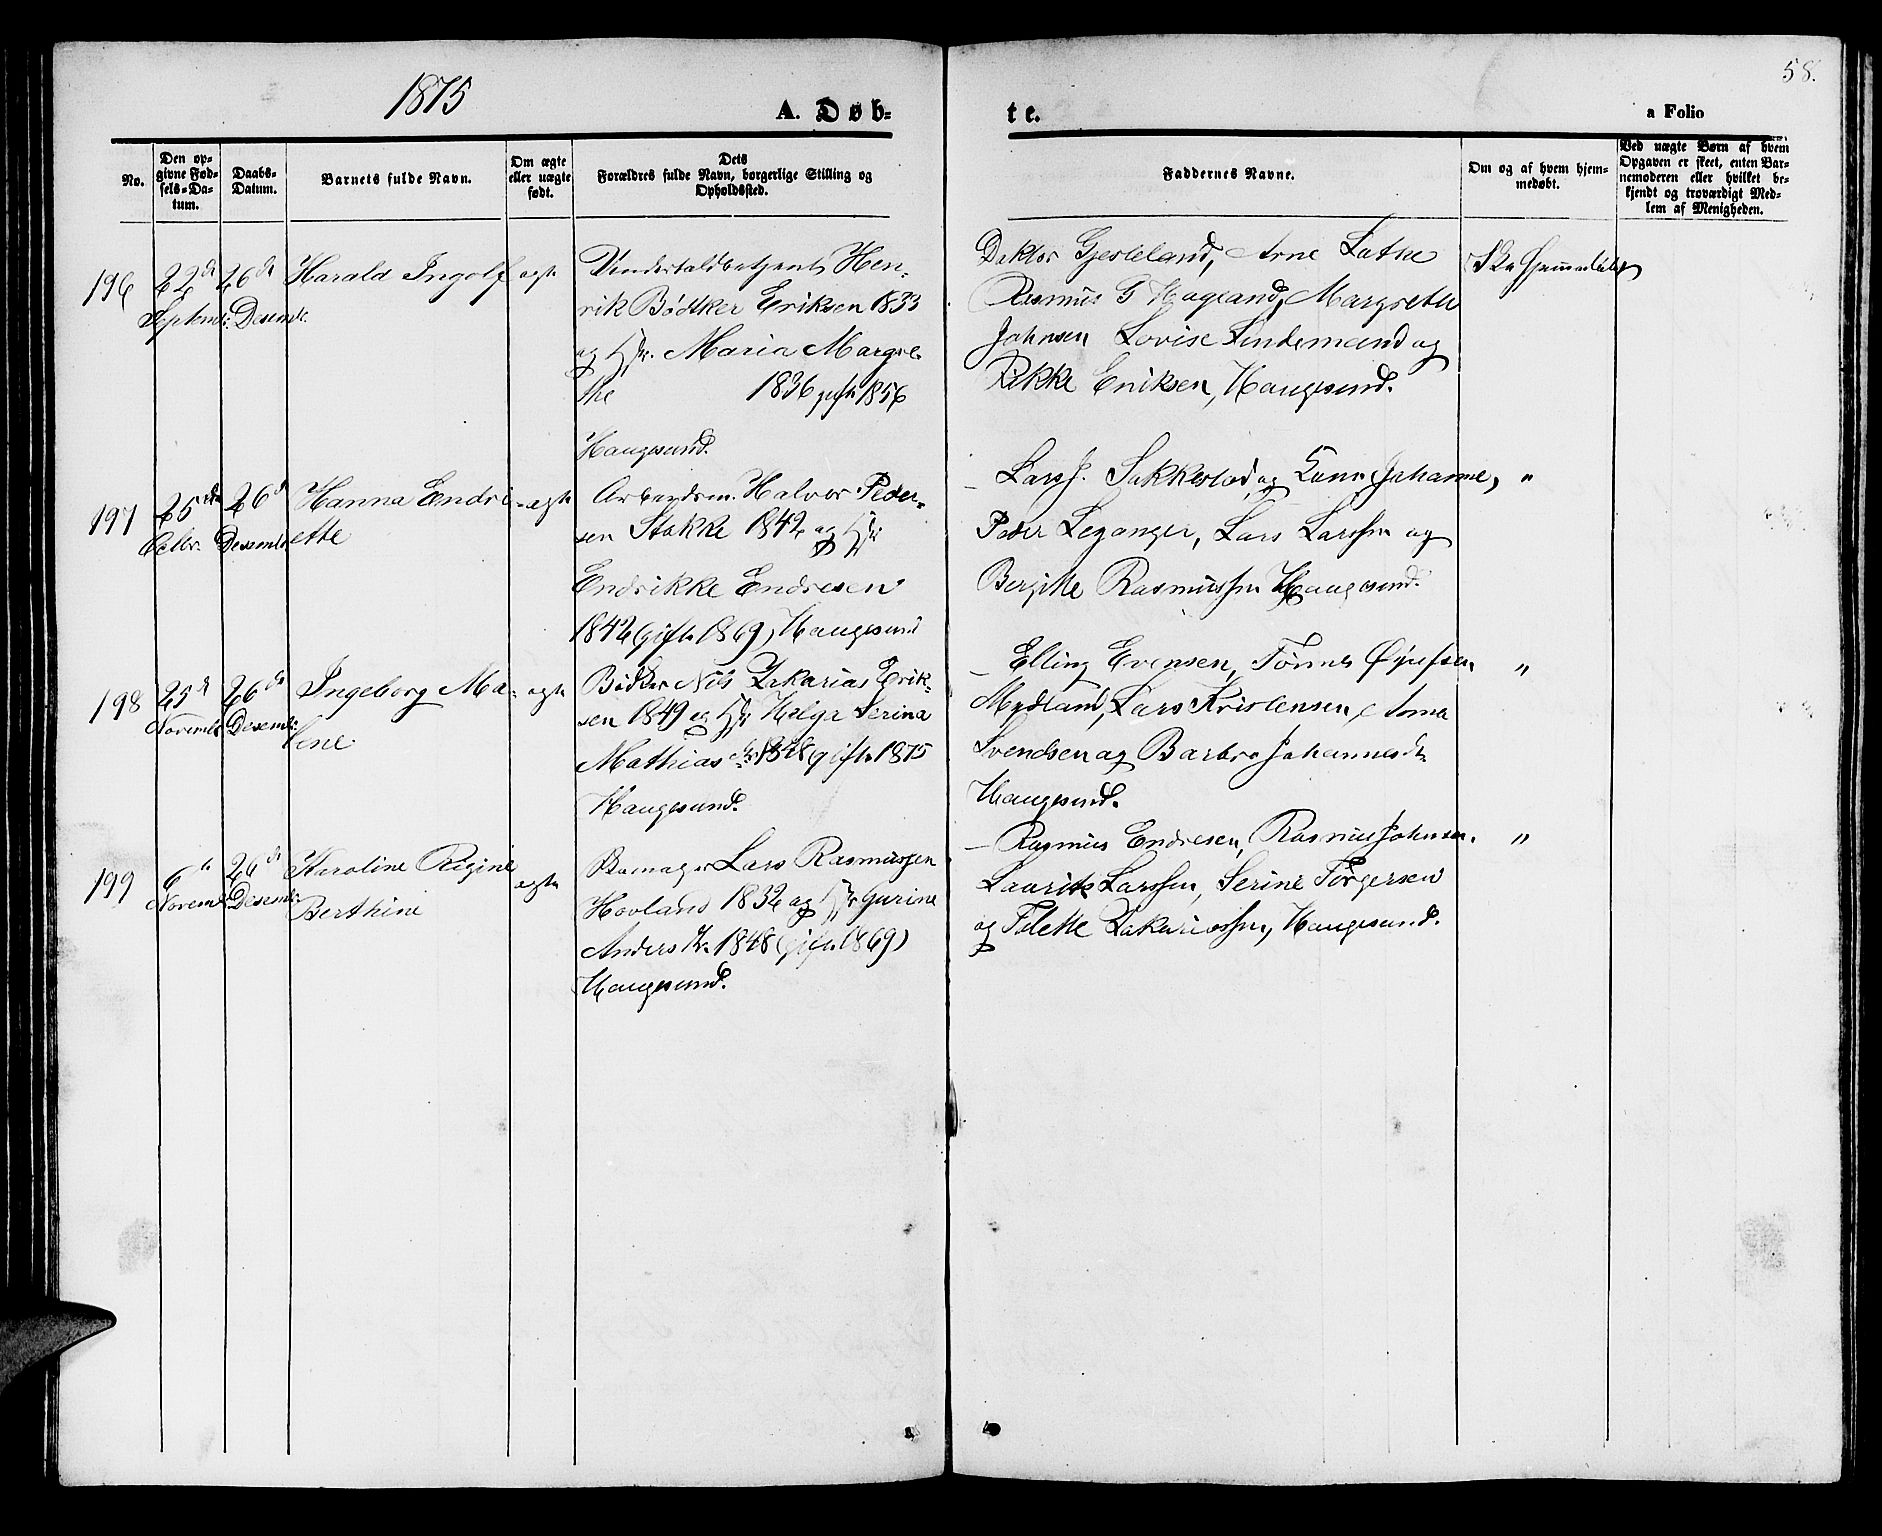 1875
A. Døb-
te.
a Folio
58.
No.
Den op-
givne Fød-
sels-Da-
tum.
Daabs-
Datum.
Barnets fulde Navn.
Om ægte
eller uægte
født.
Dets
Forældres fulde Navn, borgerlige Stilling og
Opholdssted.
Faddernes Navne.
Om og af hvem hjem-
medøbt.
Ved uægte Børn af hvem
Opgaven er skeet, enten Bar-
nemoderen eller hvilket be-
kjendt og troværdigt Med-
lem af Menigheden.
196
22d
Septemb:
26d
Desemb:
Harald Ingolf
ægte
Hen-
rik Bødtker Eriksen 1833
og Maria Margre-
the 1836 gift 1856
Haugesund.
Doktor Gjesteland, Arne
Rasmus G Hagland, Margrete
Johnsen Lovise Lindemand og
Rikke Eriksen, Haugesund.
Ikke hjemmedøbt
197
25de
26d
Desemb
Hanna Endri-
ette
ægte
Arbeidsm. Halvor Peder-
sen Stakke 1842 og
Endrikke Endresen
1842 (gift 1869) Haugesund
Lars J. Sakkestad og Johanne,
Peder Leganger, Lars Larssen og
Bergitte Rasmussen Haugesund.
"
198
25d
Novemb
26de
Desemb:
Ingeborg Ma-
lene
ægte
Bødker Nils Zakarias Erik-
sen 1849 og Helga Serina
Mathiasdtr 1848 gift 1875
Haugesund.
Elling Evensen, Tønnes
Mydland, Lars Kristensen,
Svendsen og Barbro Johannesdtr
Haugesund.
"
199
6te
Novemb
26de
Desemb:
Karoline Regine
Berthine
ægte
Skomager Lars Rasmussen
Hovland 1832 og Gurine
Andersdtr 1848 (gift 1869)
Haugesund.
Rasmus Endresen, Rasmus Johnsen.
Laurits Larssen, Serine Torgersen
og Tolette Zakariassen, Haugesund.
"